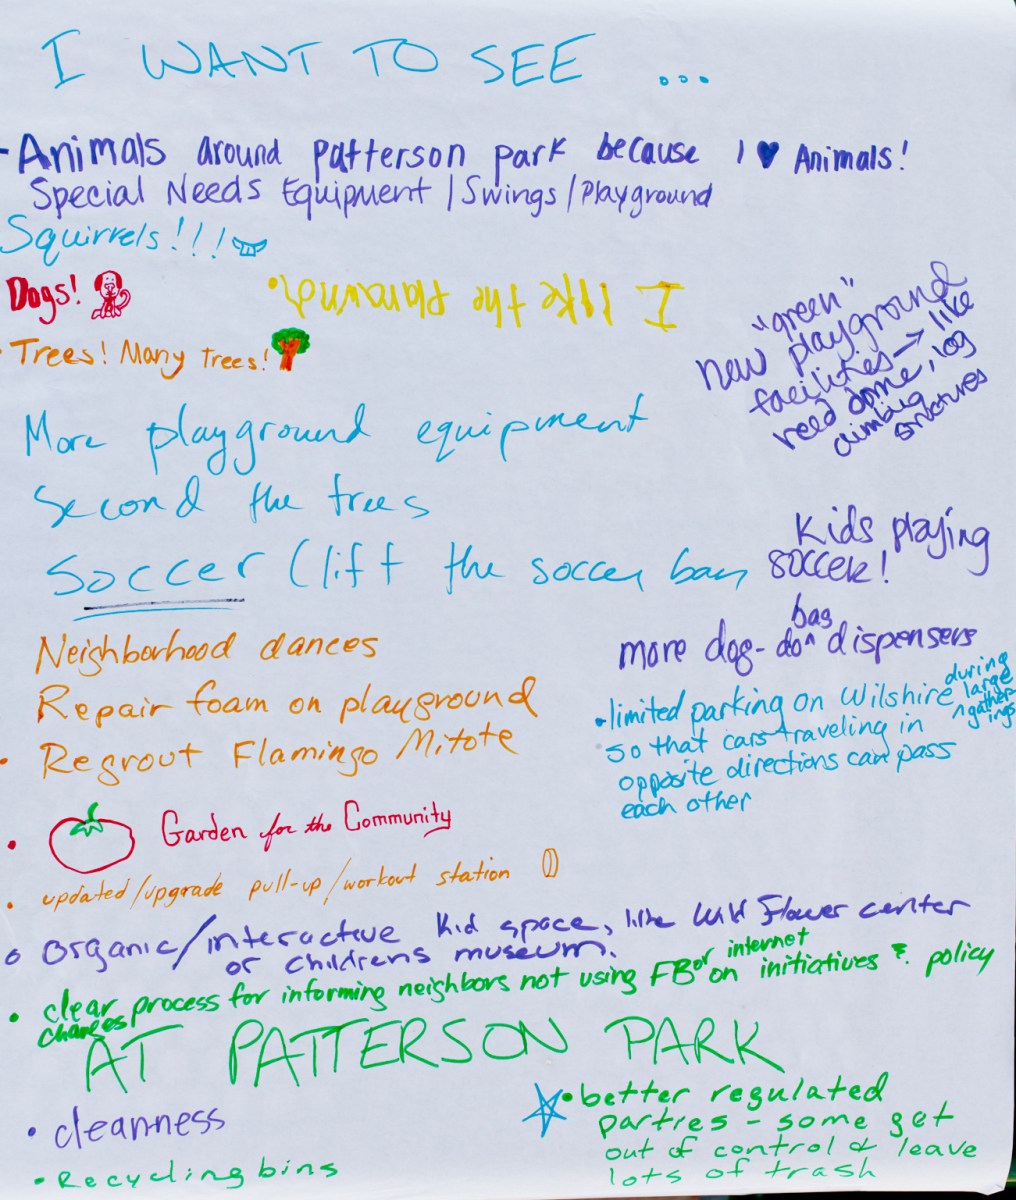 I WANT TO SEE ...
- Animals around Patterson park because I ♥ Animals!
Special Needs Equipment / Swings / Playground
Squirrels!!!
Dogs!
I like the playground.
• Trees! Many trees!
"green"
new playground
facilities → like
reed dome, log
climbing
structures
More playground equipment
Second the trees
Soccer (lift the soccer ban
Kids playing
soccer!
Neighborhood dances
more dog-do^ bag dispensers
Repair foam on playground
• Regrout Flamingo Mitote
• limited parking on Wilshire ^ during large gatherings
so that cars traveling in
opposite directions can pass
each other
• Garden for the Community
• updated/upgrade pull-up/workout station
o Organic/interactive kid space, like Wild Flower center
or childrens museum.
• clear process for informing neighbors not using FB or internet on initiatives & policy
changes
AT PATTERSON PARK
• cleanness
• Recycling bins
• better regulated
parties - some get
out of control & leave
lots of trash